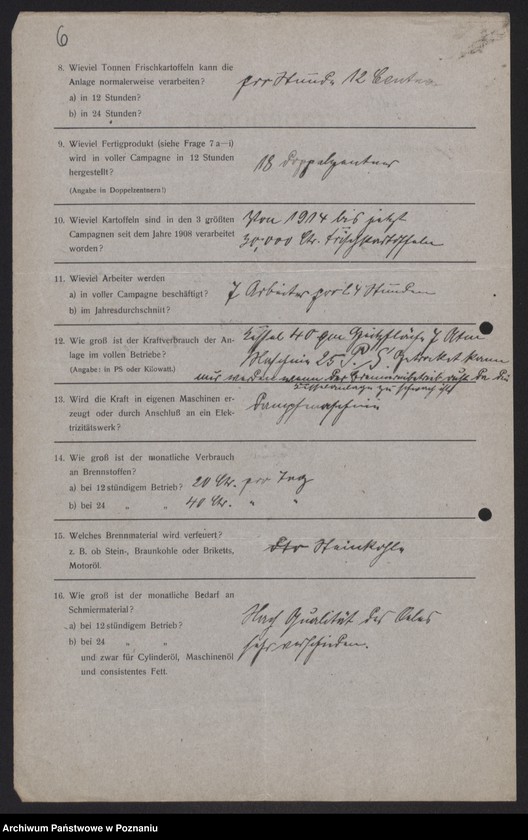 6
8. Wieviel Tonnen Frischkartoffeln kann die
Anlage normalerweise verarbeiten?
a) in 12 Stunden?
b) in 24 Stunden?
pro Stunde 12 Centner
9. Wieviel Fertigprodukt (siehe Frage 7 a—i)
wird in voller Campagne in 12 Stunden
hergestellt?
(Angabe in Doppelzentnern!)
18 Doppelzentner
10. Wieviel Kartoffeln sind in den 3 größten
Campagnen seit dem Jahre 1908 verarbeitet
worden?
Von 1914 bis jetzt
30,000 Ctr. Frischkartoffeln
11. Wieviel Arbeiter werden
a) in voller Campagne beschäftigt?
b) im Jahresdurchschnitt?
7 Arbeiter pro 24 Stunden
12. Wie groß ist der Kraftverbrauch der An-
lage im vollen Betriebe?
(Angabe: in PS oder Kilowatt.)
Kessel 40 qm Heizfläche 7 Atm
Maschine 25 P. S. Getrocknet kann
nur werden wenn der Brennereibetrieb ruht da die
Kesselanlage zu schwach ist
13. Wird die Kraft in eigenen Maschinen er-
zeugt oder durch Anschluß an ein Elek-
trizitätswerk?
Dampfmaschine
14. Wie groß ist der monatliche Verbrauch
an Brennstoffen?
a) bei 12 stündigem Betrieb? 20 Ctr. pro Tag
b) bei 24 „ „ 40 Ctr. „ „
15. Welches Brennmaterial wird verfeuert?
z. B. ob Stein-, Braunkohle oder Briketts,
Motoröl.
Steinkohle
16. Wie groß ist der monatliche Bedarf an
Schmiermaterial?
a) bei 12 stündigem Betrieb?
b) bei 24 „ „
und zwar für Cylinderöl, Maschinenöl
und consistentes Fett.
Nach Qualität des Oeles
sehr verschieden.
Archiwum Państwowe w Poznaniu